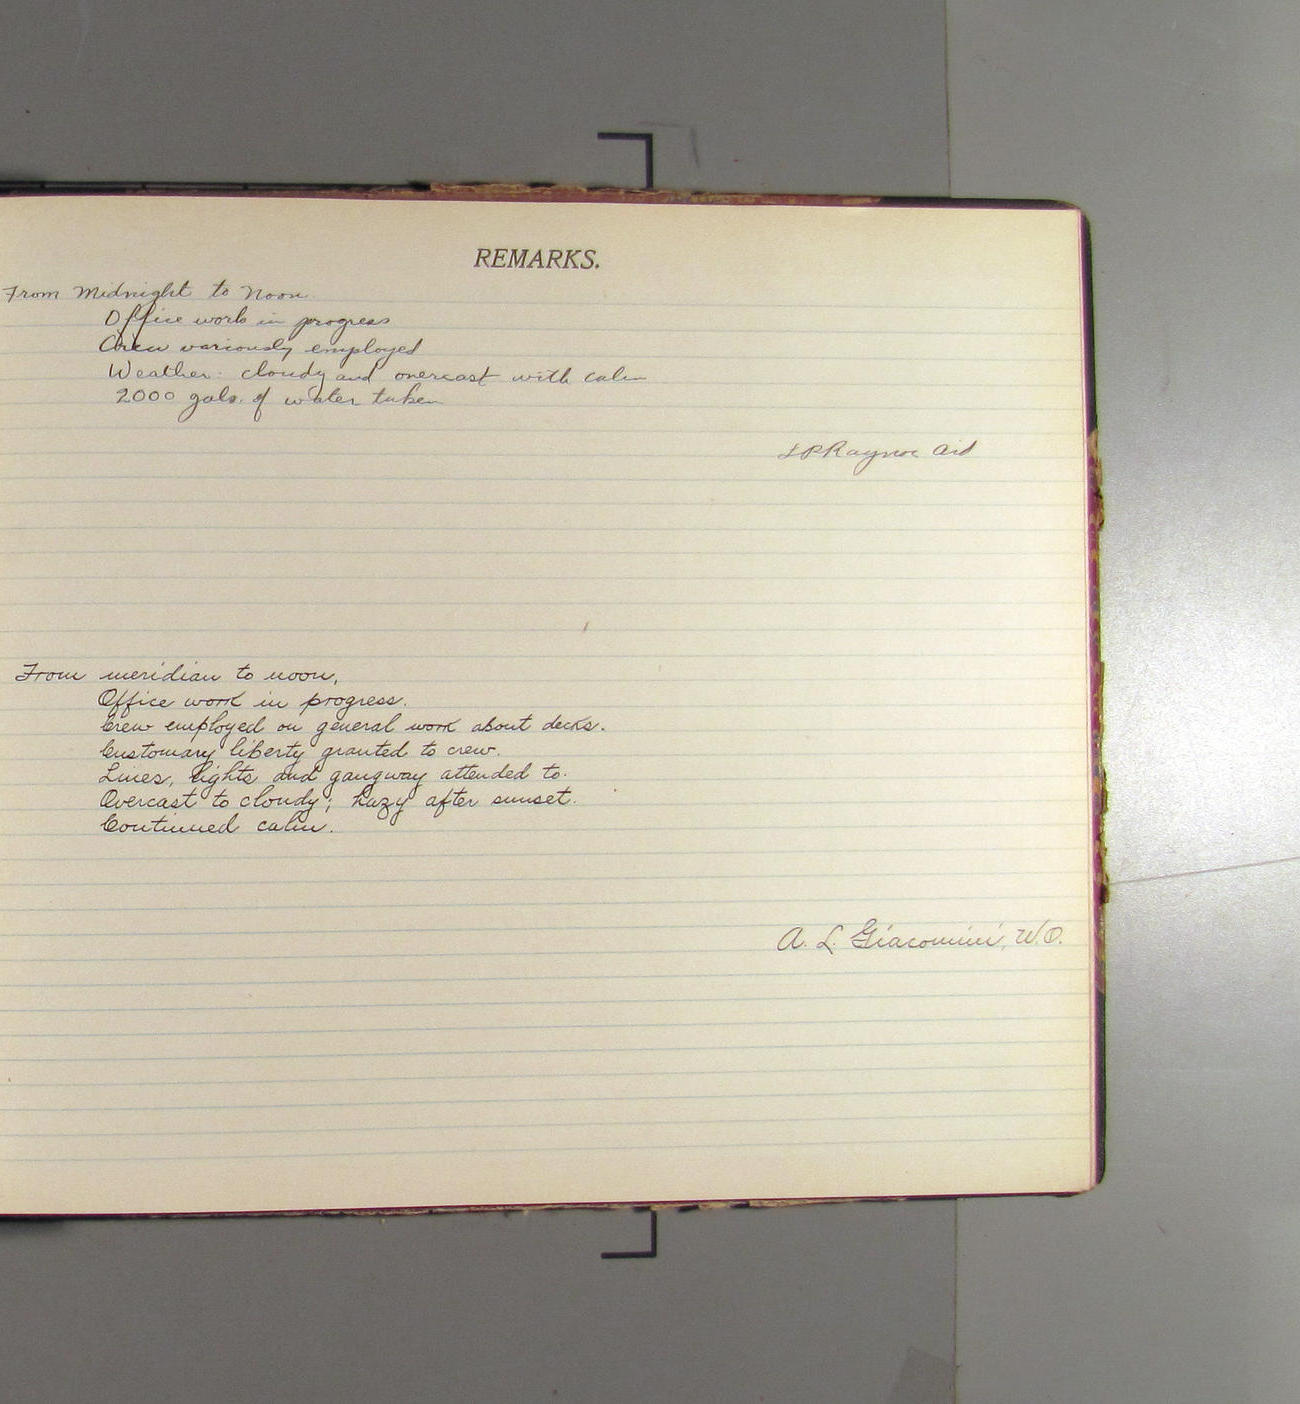 REMARKS.
From Midnight to Noon
Office work in progress
Crew variously employed
Weather: cloudy and overcast with calm
2000 gals. of water taken
Raynor Aid
From meridian to noon,
Office work in progress.
Crew employed on general work about decks.
Customary liberty granted to crew.
Lines, lights and gangway attended to.
Overcast to cloudy; hazy after sunset.
Continued calm.
A. L. Giacomini, W.O.